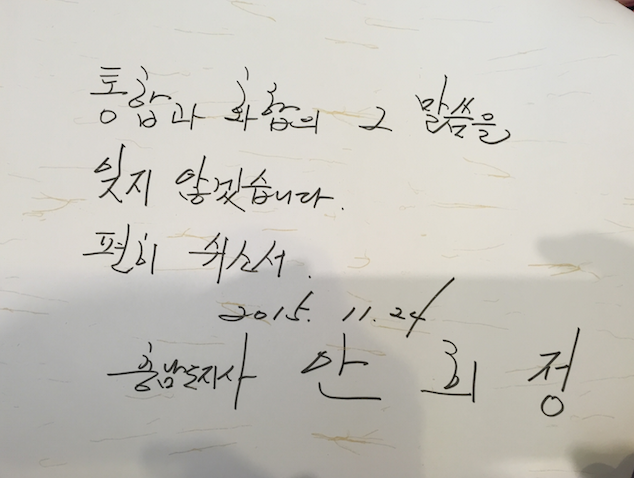 통합과 화합의 그 말씀을
잊지 않겠습니다.
편히 쉬소서.
2015. 11. 24
충남도지사 안 희 정